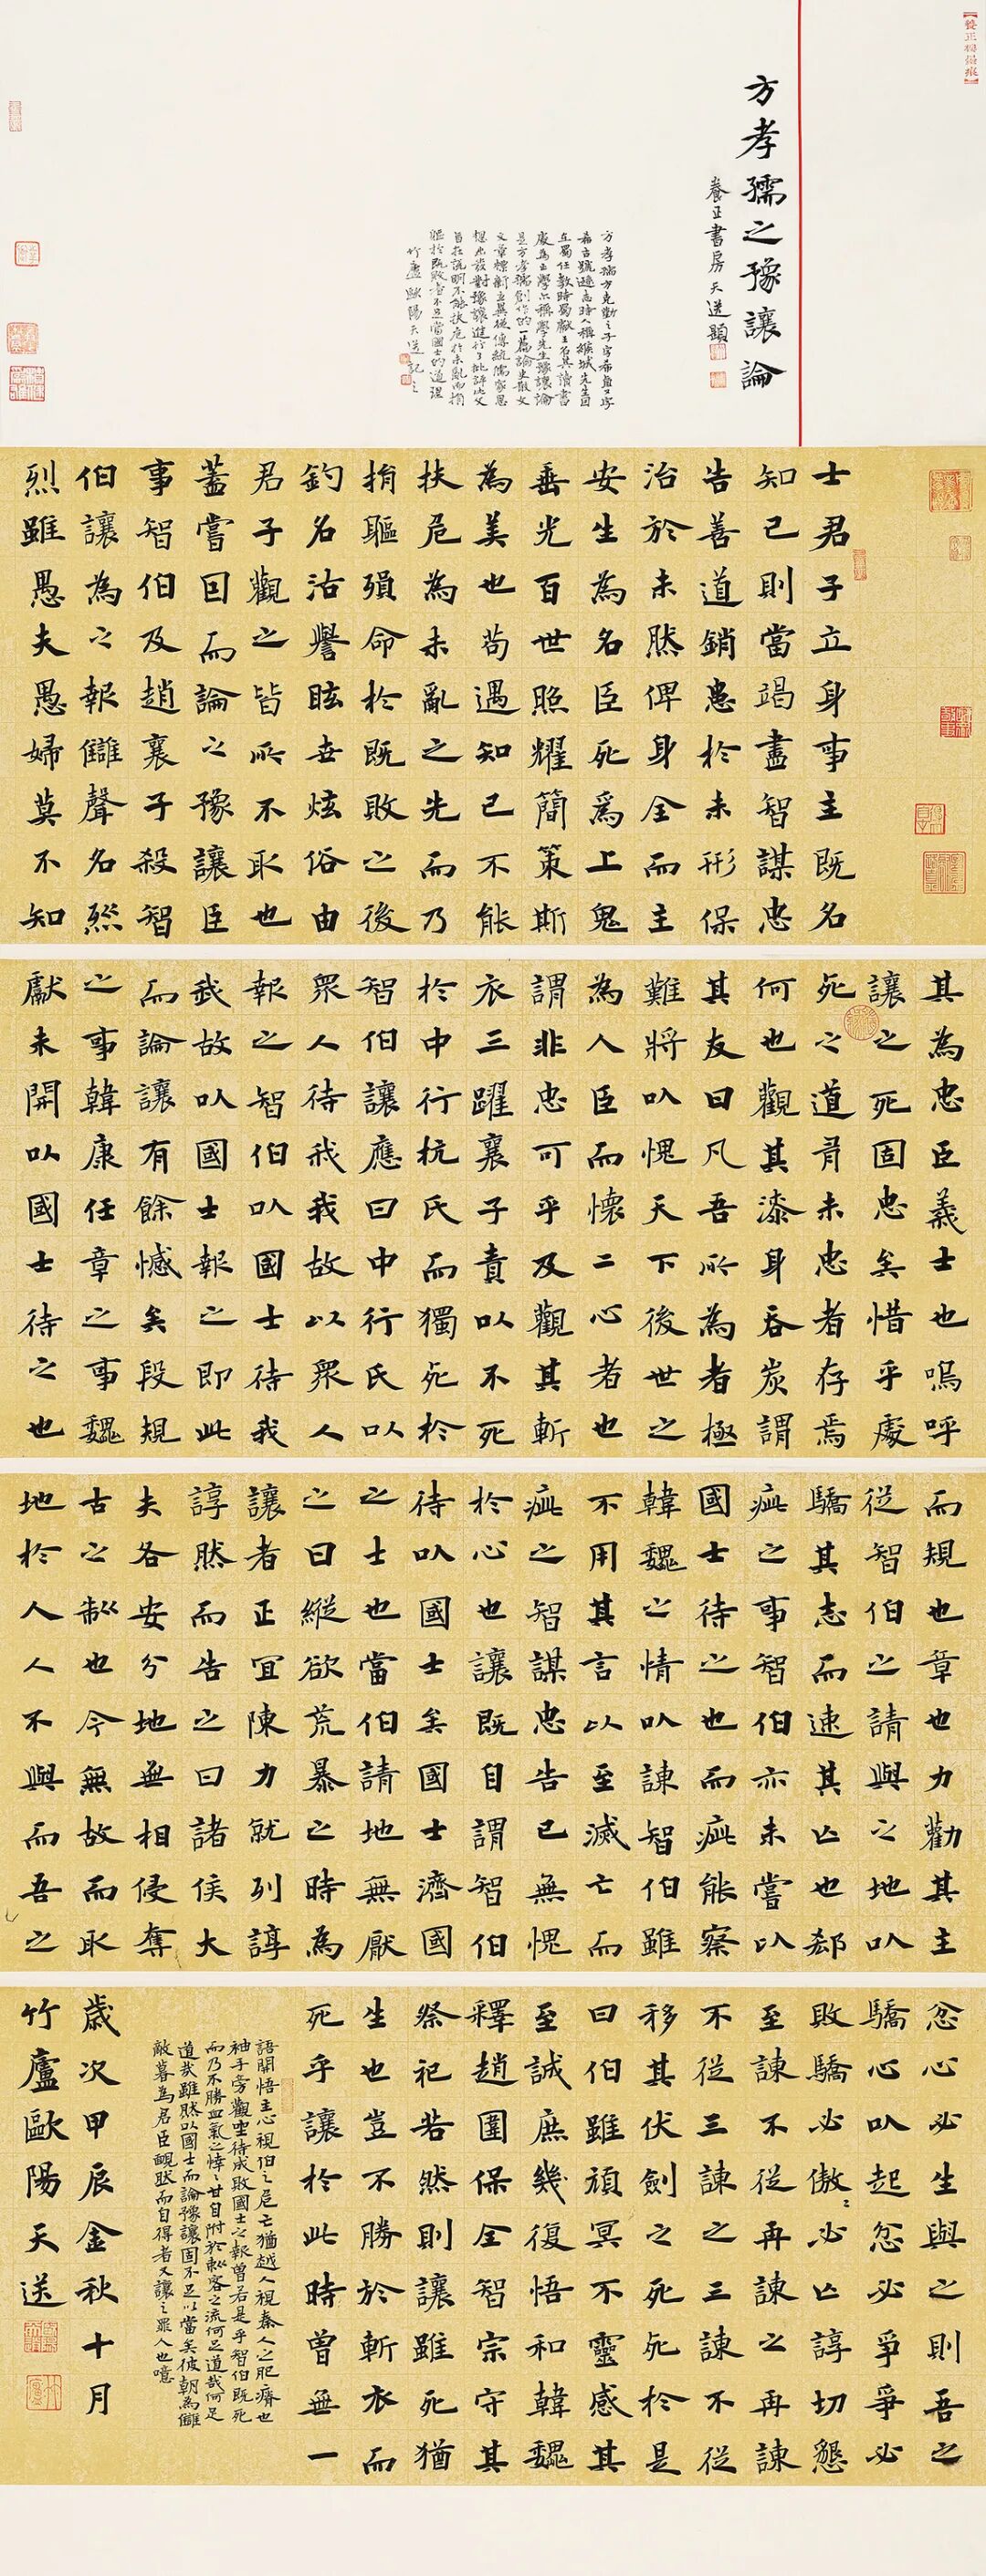 方孝孺之豫讓論
養正書房天送題
方孝孺方克勤之子字希直又字
希古號遜志時人稱緱城先生因
在蜀任教時蜀獻王名其讀書
處為正學亦稱學先生豫讓論
是方孝孺創作的一篇論史散文
文章標新立異從傳統儒家思
想出發對豫讓進行了批評此文
旨在說明不能扶危於未亂而捐
軀於既敗者不足當國士的道理
竹廬歐陽天送記之
士君子立身事主既名
知己則當竭盡智謀忠
告善道銷患於未形保
治於未然俾身全而主
安生為名臣死爲上鬼
垂光百世照耀簡策斯
為美也苟遇知己不能
扶危為未亂之先而乃
捐軀殞命於既敗之後
釣名沽譽眩世炫俗由
君子觀之皆所不取也
蓋嘗因而論之豫讓臣
事智伯及趙襄子殺智
伯讓為之報讎聲名烈
烈雖愚夫愚婦莫不知
其為忠臣義士也嗚呼
讓之死固忠矣惜乎處
死之道有未忠者存焉
何也觀其漆身吞炭謂
其友曰凡吾所為者極
難將以愧天下後世之
為人臣而懷二心者也
謂非忠可乎及觀其斬
衣三躍襄子責以不死
於中行杭氏而獨死於
智伯讓應曰中行氏以
眾人待我我故以眾人
報之智伯以國士待我
我故以國士報之即此
而論讓有餘憾矣段規
之事韓康任章之事魏
獻未聞以國士待之也
而規也章也力勸其主
從智伯之請與之地以
驕其志而速其亡也郄
疵之事智伯亦未嘗以
國士待之也而疵能察
韓魏之情以諫智伯雖
不用其言以至滅亡而
疵之智謀忠告已無愧
於心也讓既自謂智伯
待以國士矣國士濟國
之士也當伯請地無厭
之日縱欲荒暴之時為
讓者正宜陳力就列諄
諄然而告之曰諸侯大
夫各安分地無相侵奪
古之制也今無故而取
地於人人不與而吾之
忿心必生與之則吾之
驕心以起忿必爭爭必
敗驕必傲〻必亡諄切懇
至諫不從再諫之再諫
不從三諫之三諫不從
移其伏劍之死死於是
日伯雖頑冥不靈感其
至誠庶幾復悟和韓魏
釋趙圍保全智宗守其
祭祀若然則讓雖死猶
生也豈不勝於斬衣而
死乎讓於此時曾無一
語開悟主心視伯之危亡猶越人視秦人之肥瘠也
袖手旁觀坐待成敗國士之報曾若是乎智伯既死
而乃不勝血氣之悻〻甘自附於刺客之流何足道哉何足
道哉雖然以國士而論豫讓固不足以當矣彼朝為讎
敵暮為君臣靦然而自得者又讓之罪人也噫
歲次甲辰金秋十月
竹廬歐陽天送